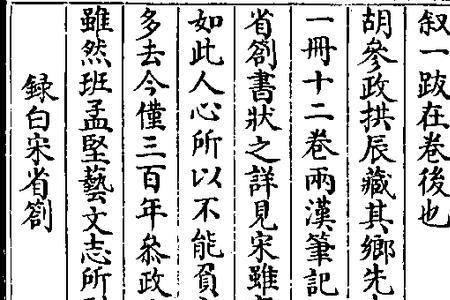 叙一跋在卷後也
胡參政拱辰藏其鄉先
一冊十二卷兩漢筆記
省劄書狀之詳見宋雖
如此人心所以不能負
多去今僅三百年叅政
雖然班孟堅藝文志所
録白宋省劄